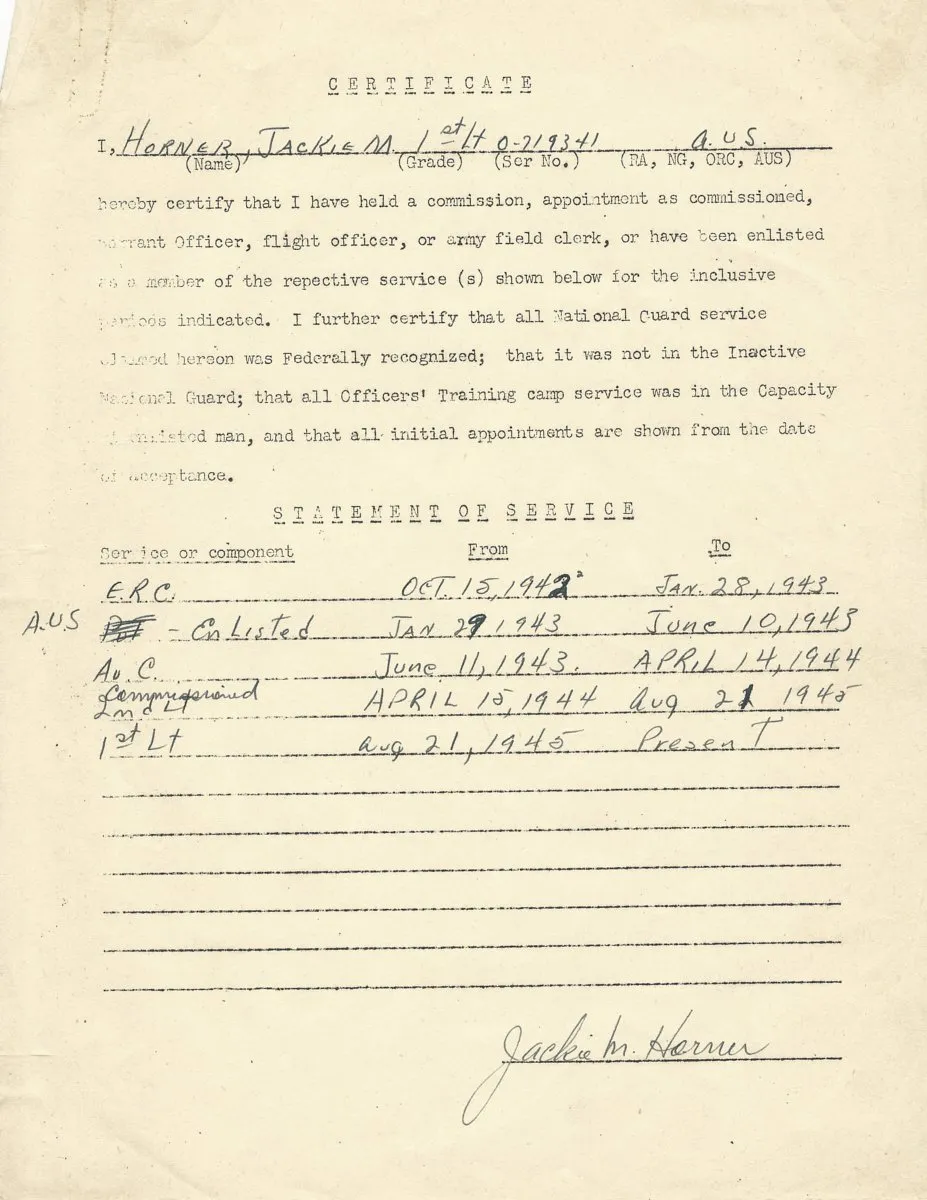 CERTIFICATE
I, HORNER, JACKIE M. 1st Lt O-719341 A.US.
(Name) (Grade) (Ser No.) (RA, NG, ORC, AUS)
hereby certify that I have held a commission, appointment as commissioned,
warrant Officer, flight officer, or army field clerk, or have been enlisted
as a member of the repective service (s) shown below for the inclusive
periods indicated. I further certify that all National Guard service
claimed hereon was Federally recognized; that it was not in the Inactive
National Guard; that all Officers' Training camp service was in the Capacity
enlisted man, and that all initial appointments are shown from the date
of acceptance.
STATEMENT OF SERVICE
Service or component From To
E.R.C. OCT. 15, 1942 JAN. 28, 1943
A.U.S - EnListed JAN 29 1943 June 10, 1943
Av. C. June 11, 1943. APRIL 14, 1944
Commissioned
2nd LT APRIL 15, 1944 Aug 21 1945
1st Lt Aug 21, 1945 PresenT
Jackie M. Horner